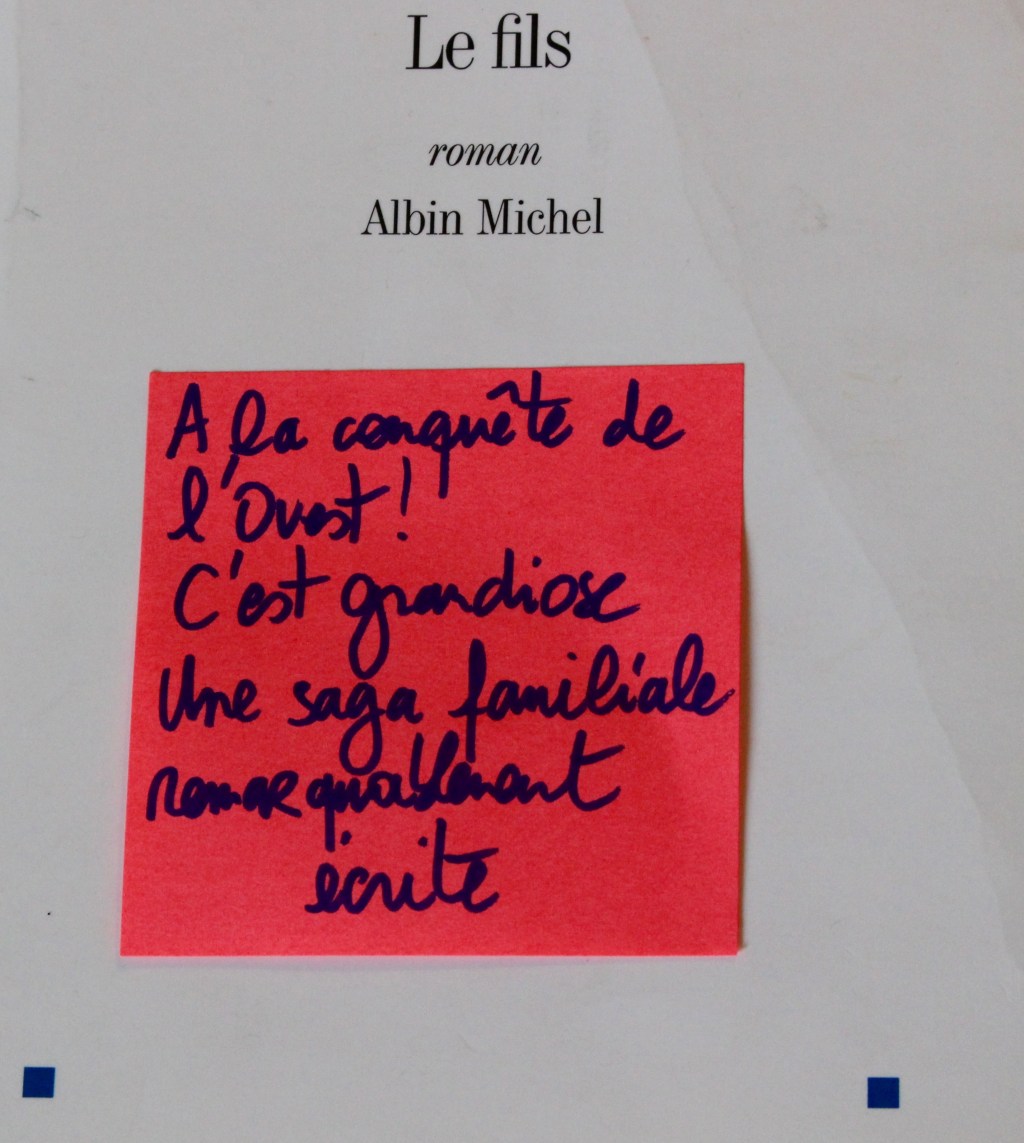 Le fils
roman
Albin Michel
A la conquête de
l'Ouest!
C'est grandiose
Une saga familiale
remarquablement
écrite